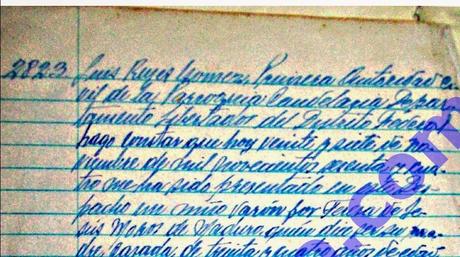 2823 Luis Reyes Gomez, Primera Autoridad Ci-
vil de la Parroquia Candelaria Depar-
tamento Libertador del Distrito Federal
hago constar que hoy veinte y siete de no-
viembre de mil novecientos sesenta y cua-
tro me ha sido presentado en este Des-
pacho un niño varón por Teresa de Je-
sús Moros de Maduro quien dice ser su ma-
dre, casada, de treinta y cuatro años de edad
.com